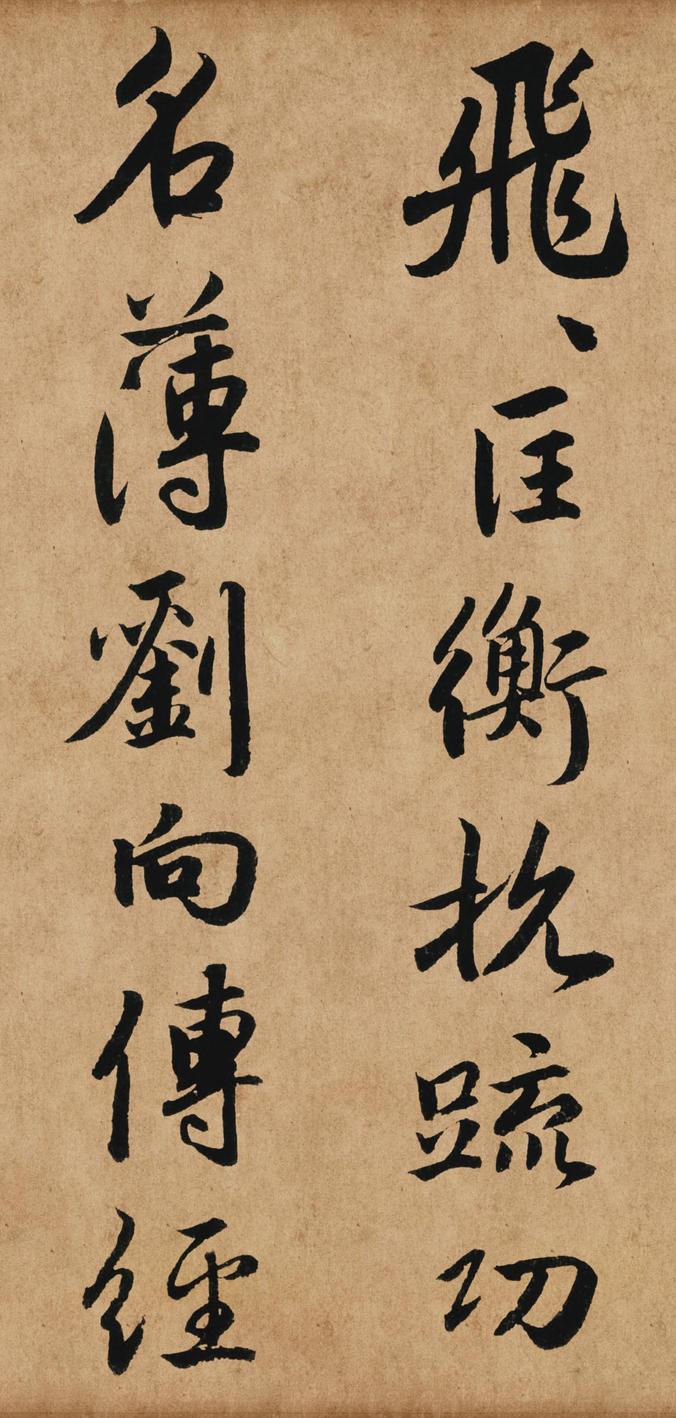 飛、匡衡抗疏功
名薄劉向傳經